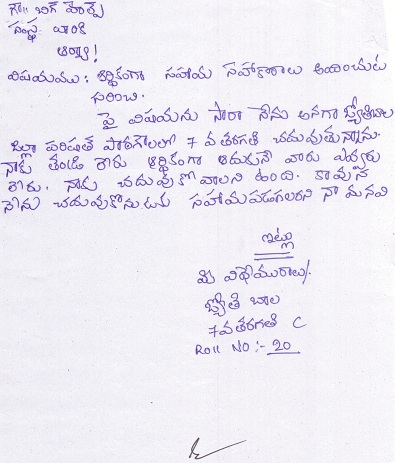 గౌ॥ బిగ్ హెల్ప్
సంస్థ వారికి
ఆర్యా!
విషయము : ఆర్థికంగా సహాయ సహాకారాలు అందించుట
గురించి.
పై విషయను సారా నేను అనగా జ్యోతిబాల
జిల్లా పరిషత్ పాఠశాలలో 7 వ తరగతి చదువుతున్నాను.
నాకు తండ్రి లేరు ఆర్థికంగా ఆదుకునే వారు ఎవ్వరు
లేరు. నాకు చదువుకోవాలని ఉంది. కావున
నేను చదువుకొనుటకు సహాయపడగలరని నా మనవి
ఇట్లు
మీ విధేయురాలు/.
జ్యోతి బాల
7వ తరగతి C
Roll NO :- 20